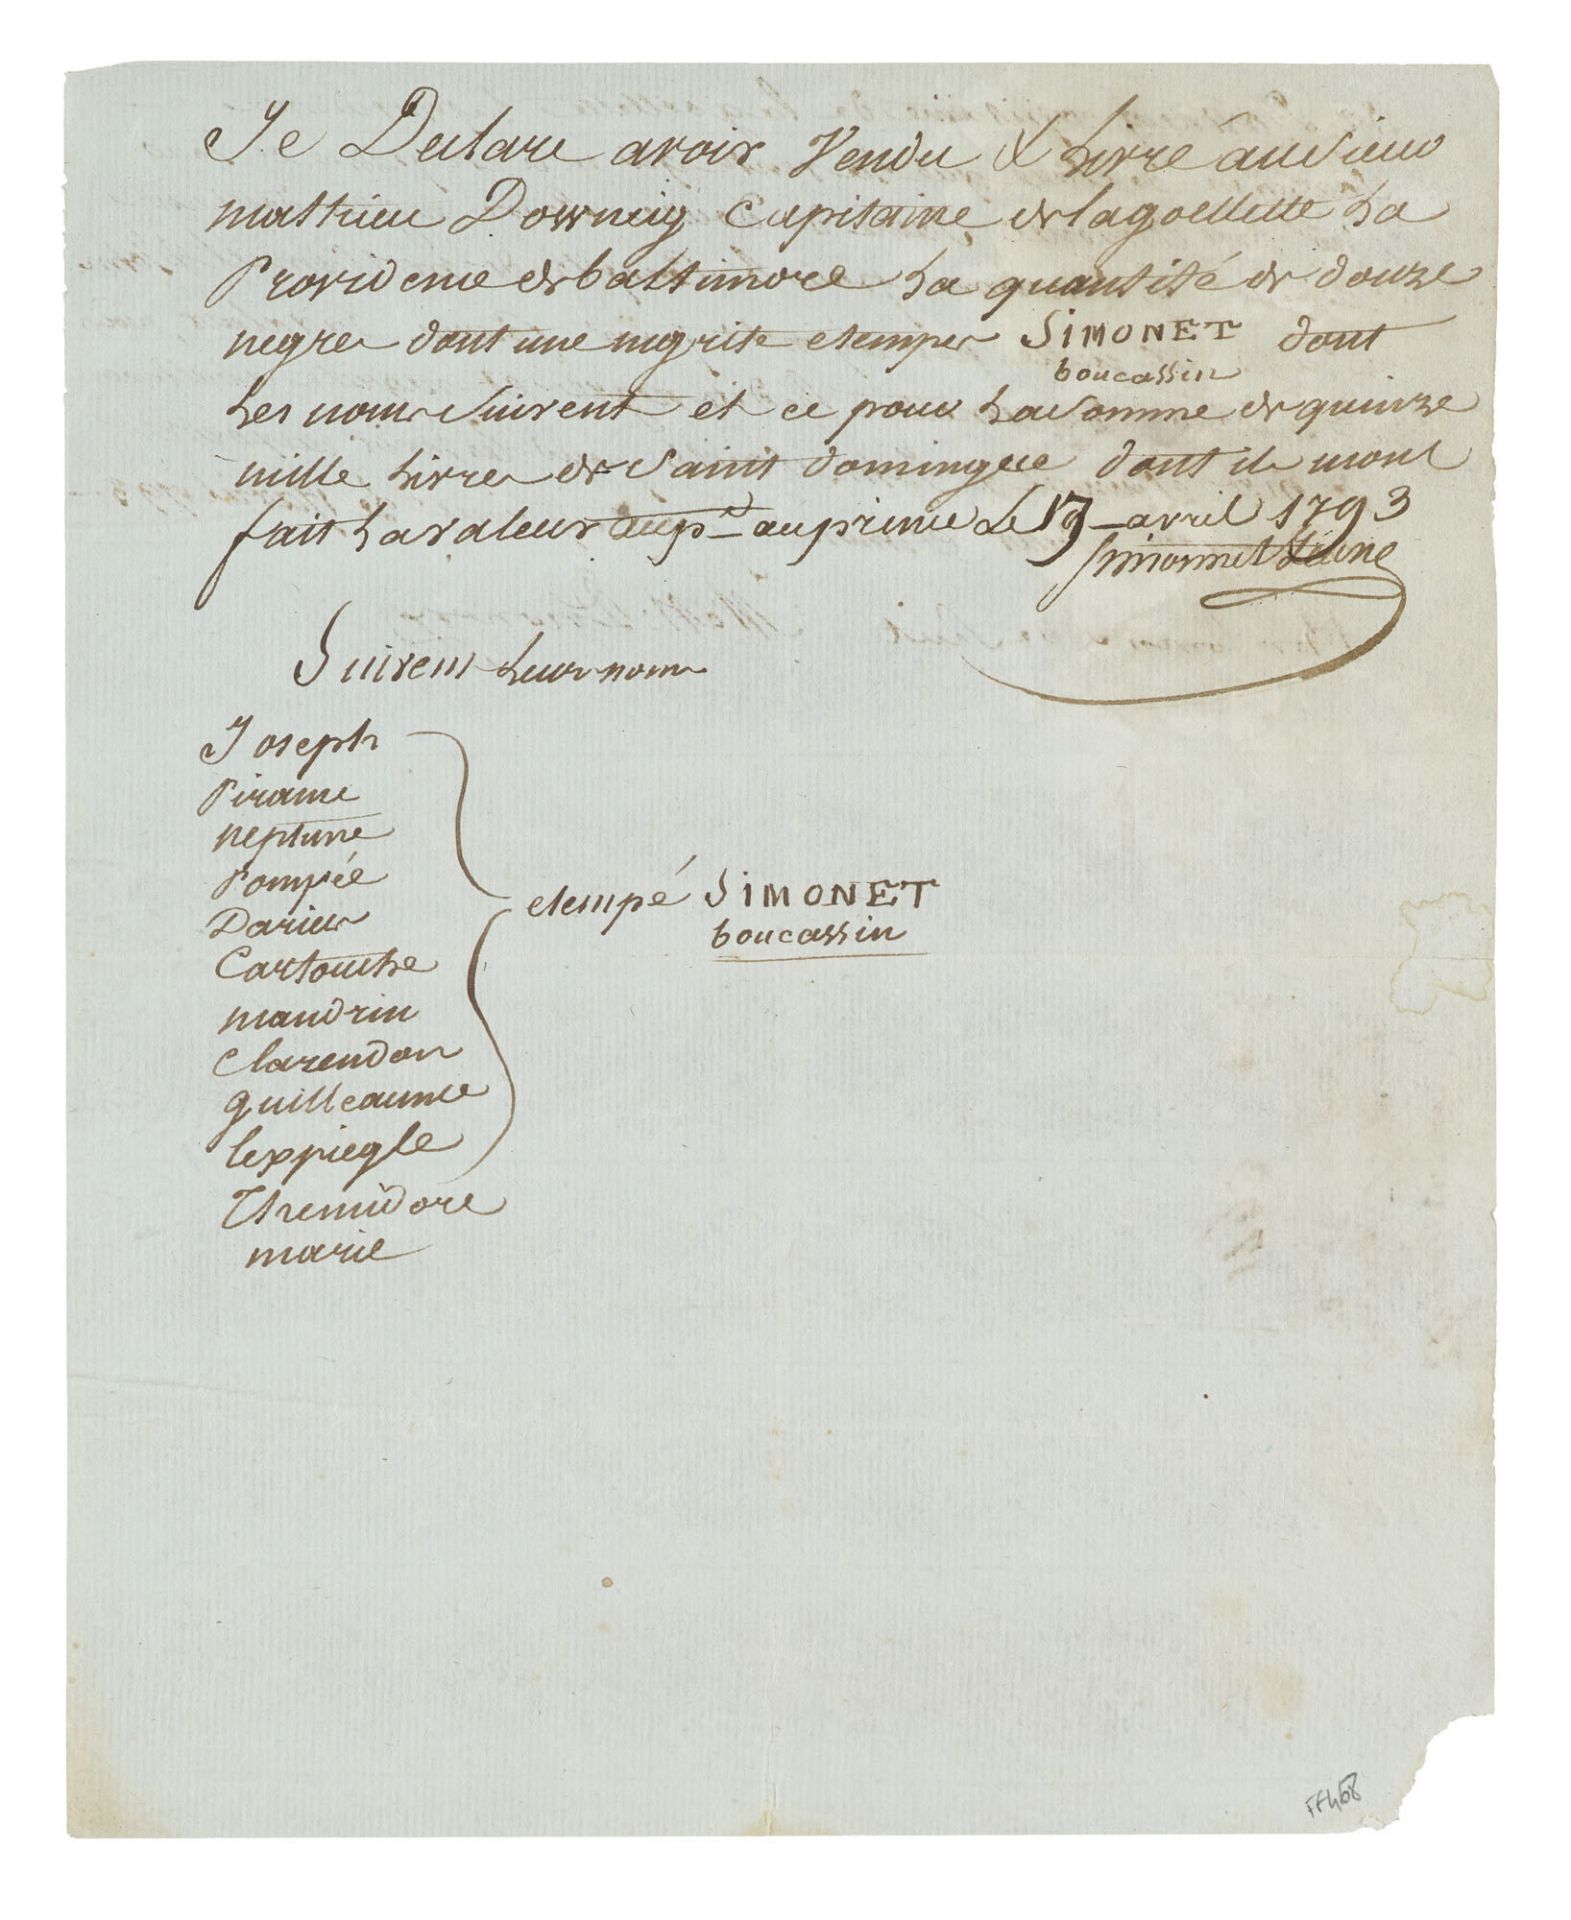 Je Declare avoir Vendu & Livré au Sieur
mathieu Downeig Capitaine de la goellette La
Providence de baltimore La quantité de douze
negres dont une negrite etempés SIMONET dont
boucassin
Les noms Suivent et ce pour La Somme de quinze
mille Livres de Saint domingue dont il mont
fait La valeur au p^ce au prince Le 19 avril 1793
Simonnet Jeune
Suivent Leurs noms
Joseph
Pirame
neptune
Pompée
Darius
Cartouche
mandrin
Clarendon
guilleaume
lexpiegle
Themidore
marie
etempé SIMONET
boucassin